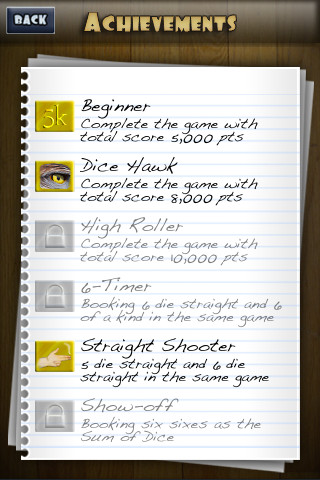 BACK
ACHIEVEMENTS
5k
Beginner
Complete the game with
total score 5,000 pts
Dice Hawk
Complete the game with
total score 8,000 pts
High Roller
Complete the game with
total score 10,000 pts
6-Timer
Booking 6 die straight and 6
of a kind in the same game
Straight Shooter
5 die straight and 6 die
straight in the same game
Show-off
Booking six sixes as the
Sum of Dice